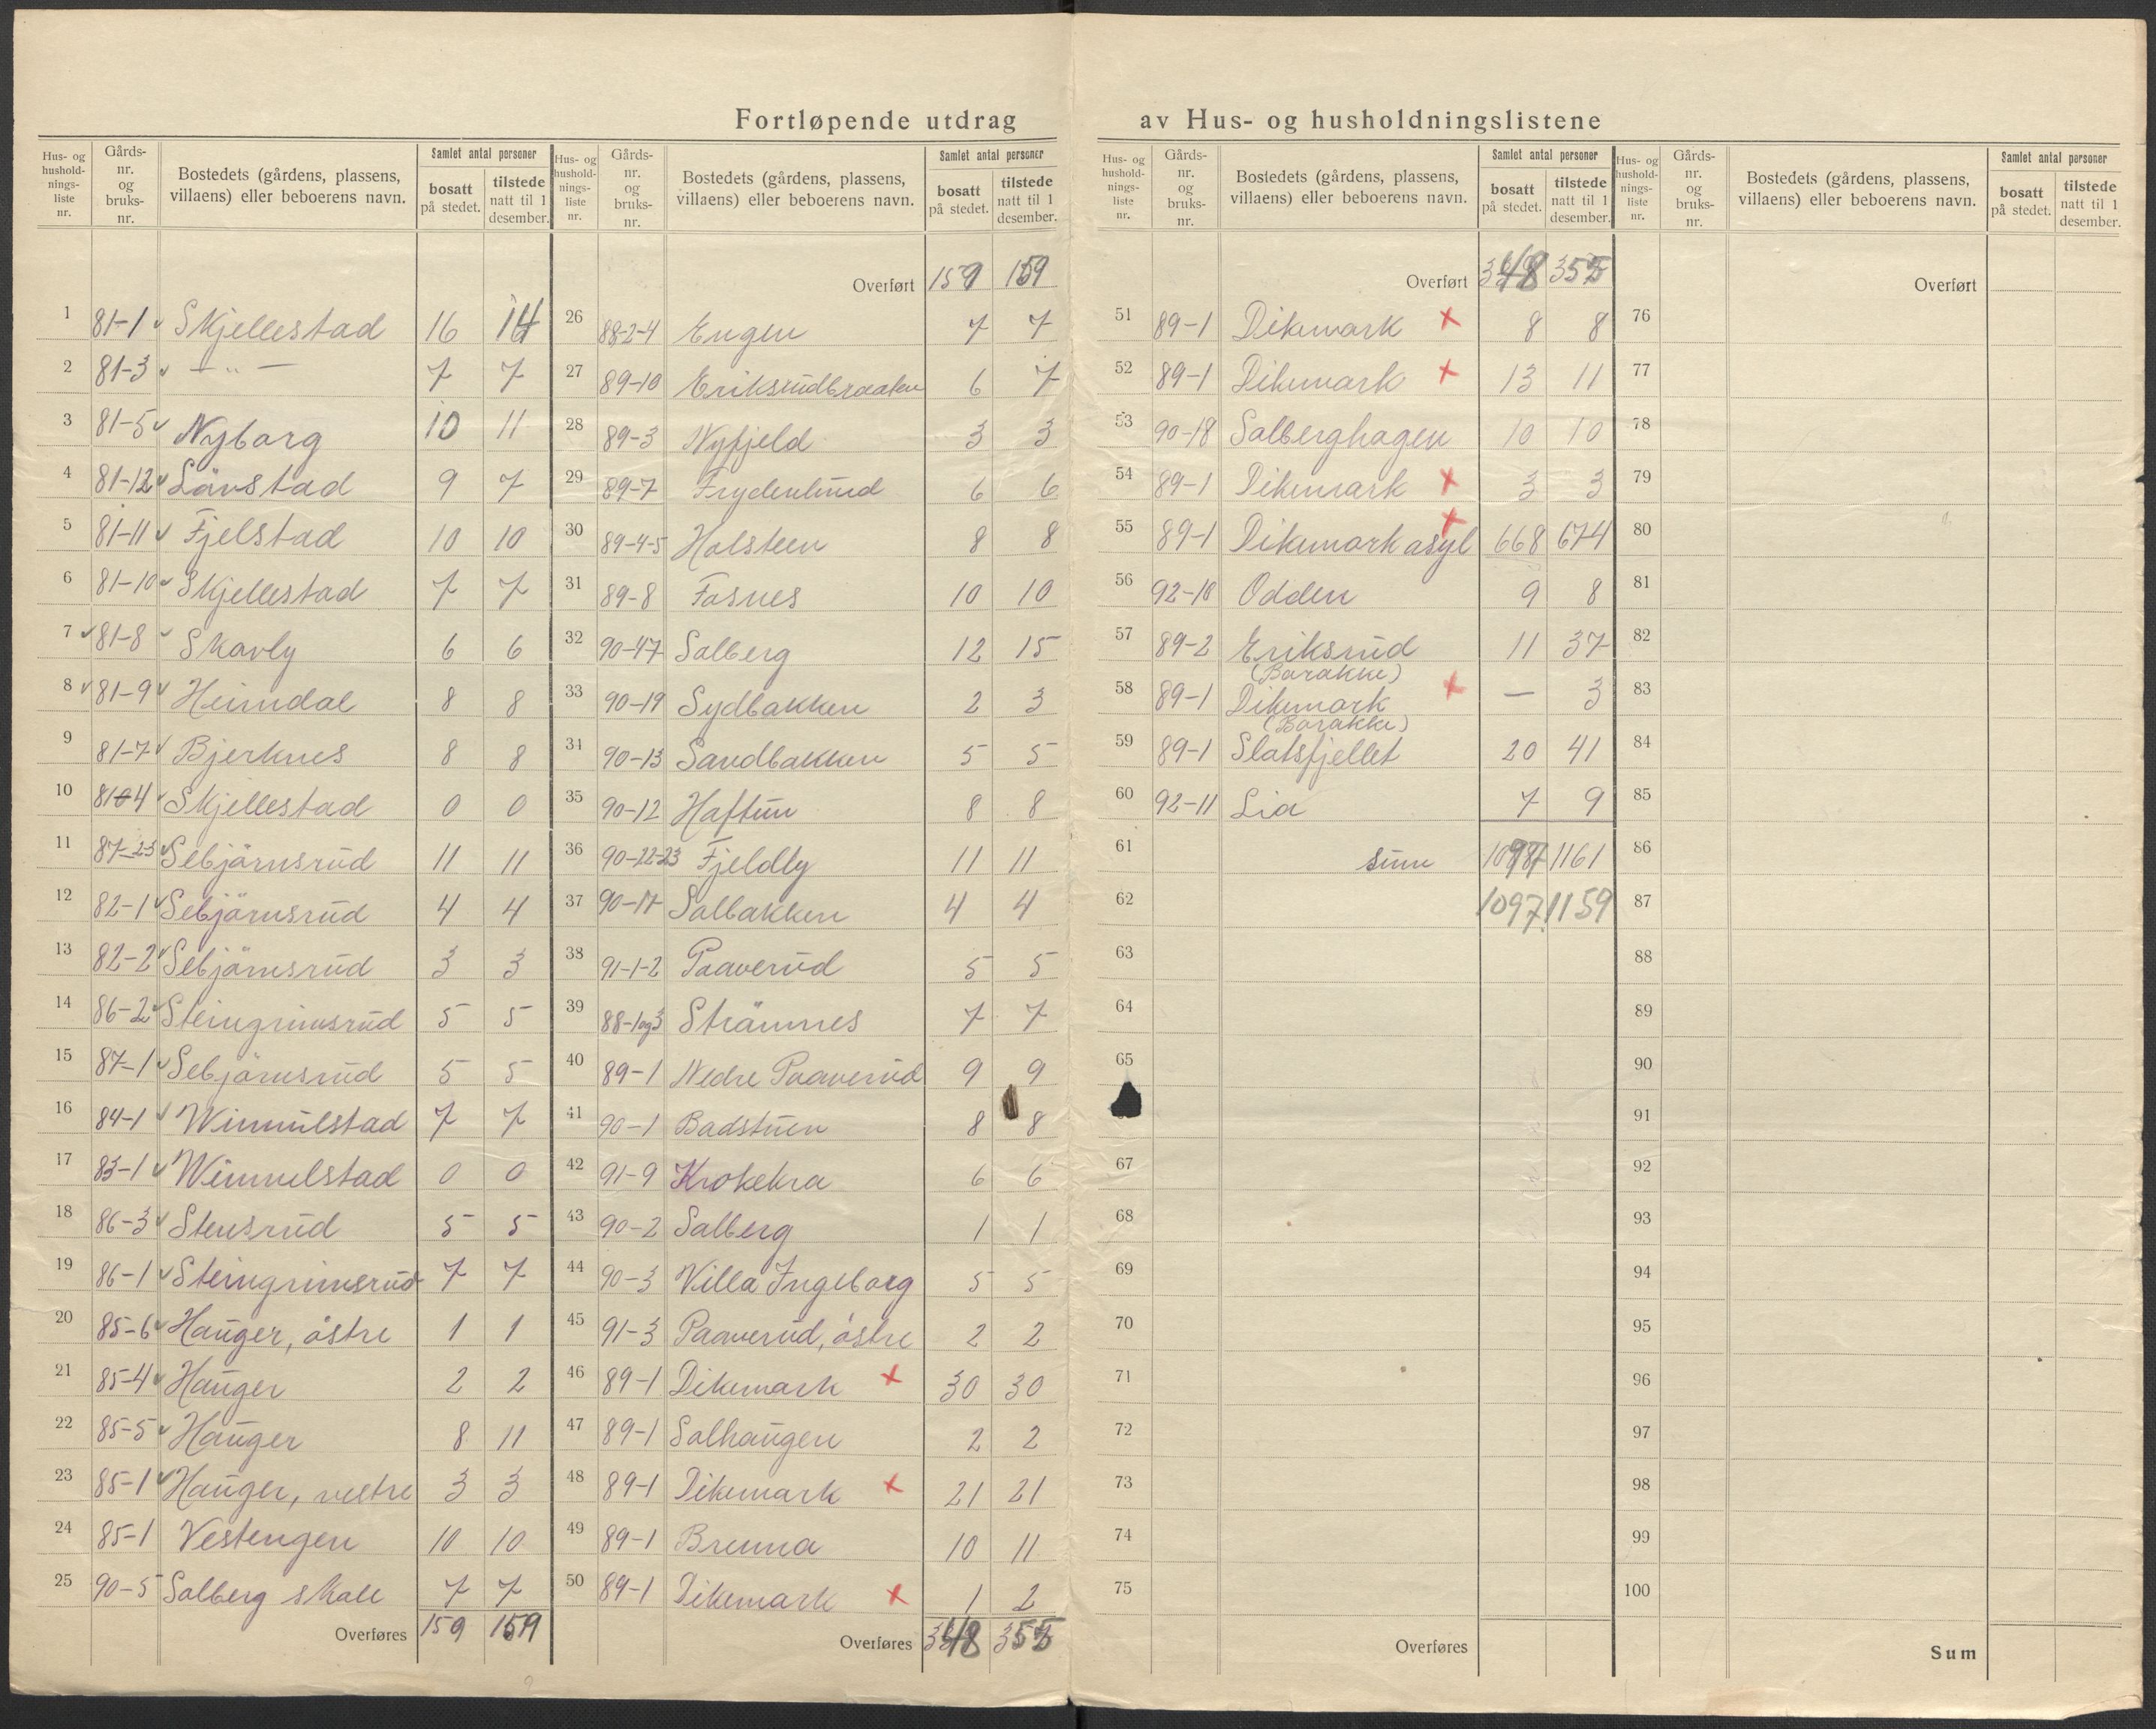 Fortløpende utdrag av Hus- og husholdningslistene
Hus- og husholdnings-liste nr. Gårds-nr. og bruks-nr. Bostedets (gårdens, plassens, villaens) eller beboerens navn. Samlet antal personer bosatt på stedet. tilstede natt til 1 desember.
1 81-1 Skjellestad 16 14
2 81-3 — „ — 7 7
3 81-5 Nyborg 10 11
4 81-12 Lövstad 9 7
5 81-11 Fjelstad 10 10
6 81-10 Skjellestad 7 7
7 81-8 Skavly 6 6
8 81-9 Heimdal 8 8
9 81-7 Bjerknes 8 8
10 81-4 Skjellestad 0 0
11 87-2-3 Sebjörnsrud 11 11
12 82-1 Sebjörnsrud 4 4
13 82-2 Sebjörnsrud 3 3
14 86-2 Steingrimsrud 5 5
15 87-1 Sebjörnsrud 5 5
16 84-1 Wimmilstad 7 7
17 83-1 Wimmelstad 0 0
18 86-3 Stensrud 5 5
19 86-1 Steingrimsrud 7 7
20 85-6 Hauger, östre 1 1
21 85-4 Hauger 2 2
22 85-5 Hauger 8 11
23 85-1 Hauger, vestre 3 3
24 85-1 Vestengen 10 10
25 90-5 Solberg skole 7 7
Overføres 159 159
Hus- og husholdnings-liste nr. Gårds-nr. og bruks-nr. Bostedets (gårdens, plassens, villaens) eller beboerens navn. Samlet antal personer bosatt på stedet. tilstede natt til 1 desember.
Overført 159 159
26 88-2-4 Engen 7 7
27 89-10 Eriksrudbraaten 6 7
28 89-3 Nyfjeld 3 3
29 89-7 Frydenlund 6 6
30 89-4-5 Holsteen 8 8
31 89-8 Fosnes 10 10
32 90-47 Solberg 12 15
33 90-19 Sydbakken 2 3
34 90-13 Sandbakken 5 5
35 90-12 Haftun 8 8
36 90-22-23 Fjeldly 11 11
37 90-17 Solbakken 4 4
38 91-1-2 Paaverud 5 5
39 88-1og3 Strömnes 7 7
40 89-1 Nedre Paaverud 9 9
41 90-1 Badstuen 8 8
42 91-9 Krokekra 6 6
43 90-2 Solberg 1 1
44 90-3 Villa Ingeborg 5 5
45 91-3 Paaverud, östre 2 2
46 89-1 Dikemark × 30 30
47 89-1 Solhaugen 2 2
48 89-1 Dikemark × 21 21
49 89-1 Brenna 10 11
50 89-1 Dikemark × 1 2
Overføres 348 355
Hus- og husholdnings-liste nr. Gårds-nr. og bruks-nr. Bostedets (gårdens, plassens, villaens) eller beboerens navn. Samlet antal personer bosatt på stedet. tilstede natt til 1 desember.
Overført 348 355
51 89-1 Dikemark × 8 8
52 89-1 Dikemark × 13 11
53 90-18 Solberghagen 10 10
54 89-1 Dikemark × 3 3
55 89-1 Dikemark asyl × 668 674
56 92-10 Odden 9 8
57 89-2 Eriksrud 11 37
(Barakke)
58 89-1 Dikemark × — 3
(Barakke)
59 89-1 Slatsfjellet 20 41
60 92-11 Lia 7 9
61 sum 1097 1161
62 1097 1159
63
64
65
67
68
69
70
71
72
73
74
75
Overføres
Hus- og husholdnings-liste nr. Gårds-nr. og bruks-nr. Bostedets (gårdens, plassens, villaens) eller beboerens navn. Samlet antal personer bosatt på stedet. tilstede natt til 1 desember.
Overført
76
77
78
79
80
81
82
83
84
85
86
87
88
89
90
91
92
93
94
95
96
97
98
99
100
Sum